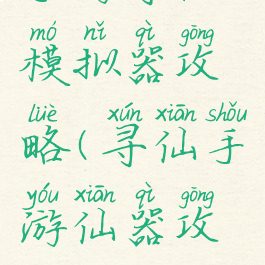 mó nǐ qì gōng
模拟器攻
lüè xún xiān shǒu
略(寻仙手
yóu xiān qì gōng
游仙器攻